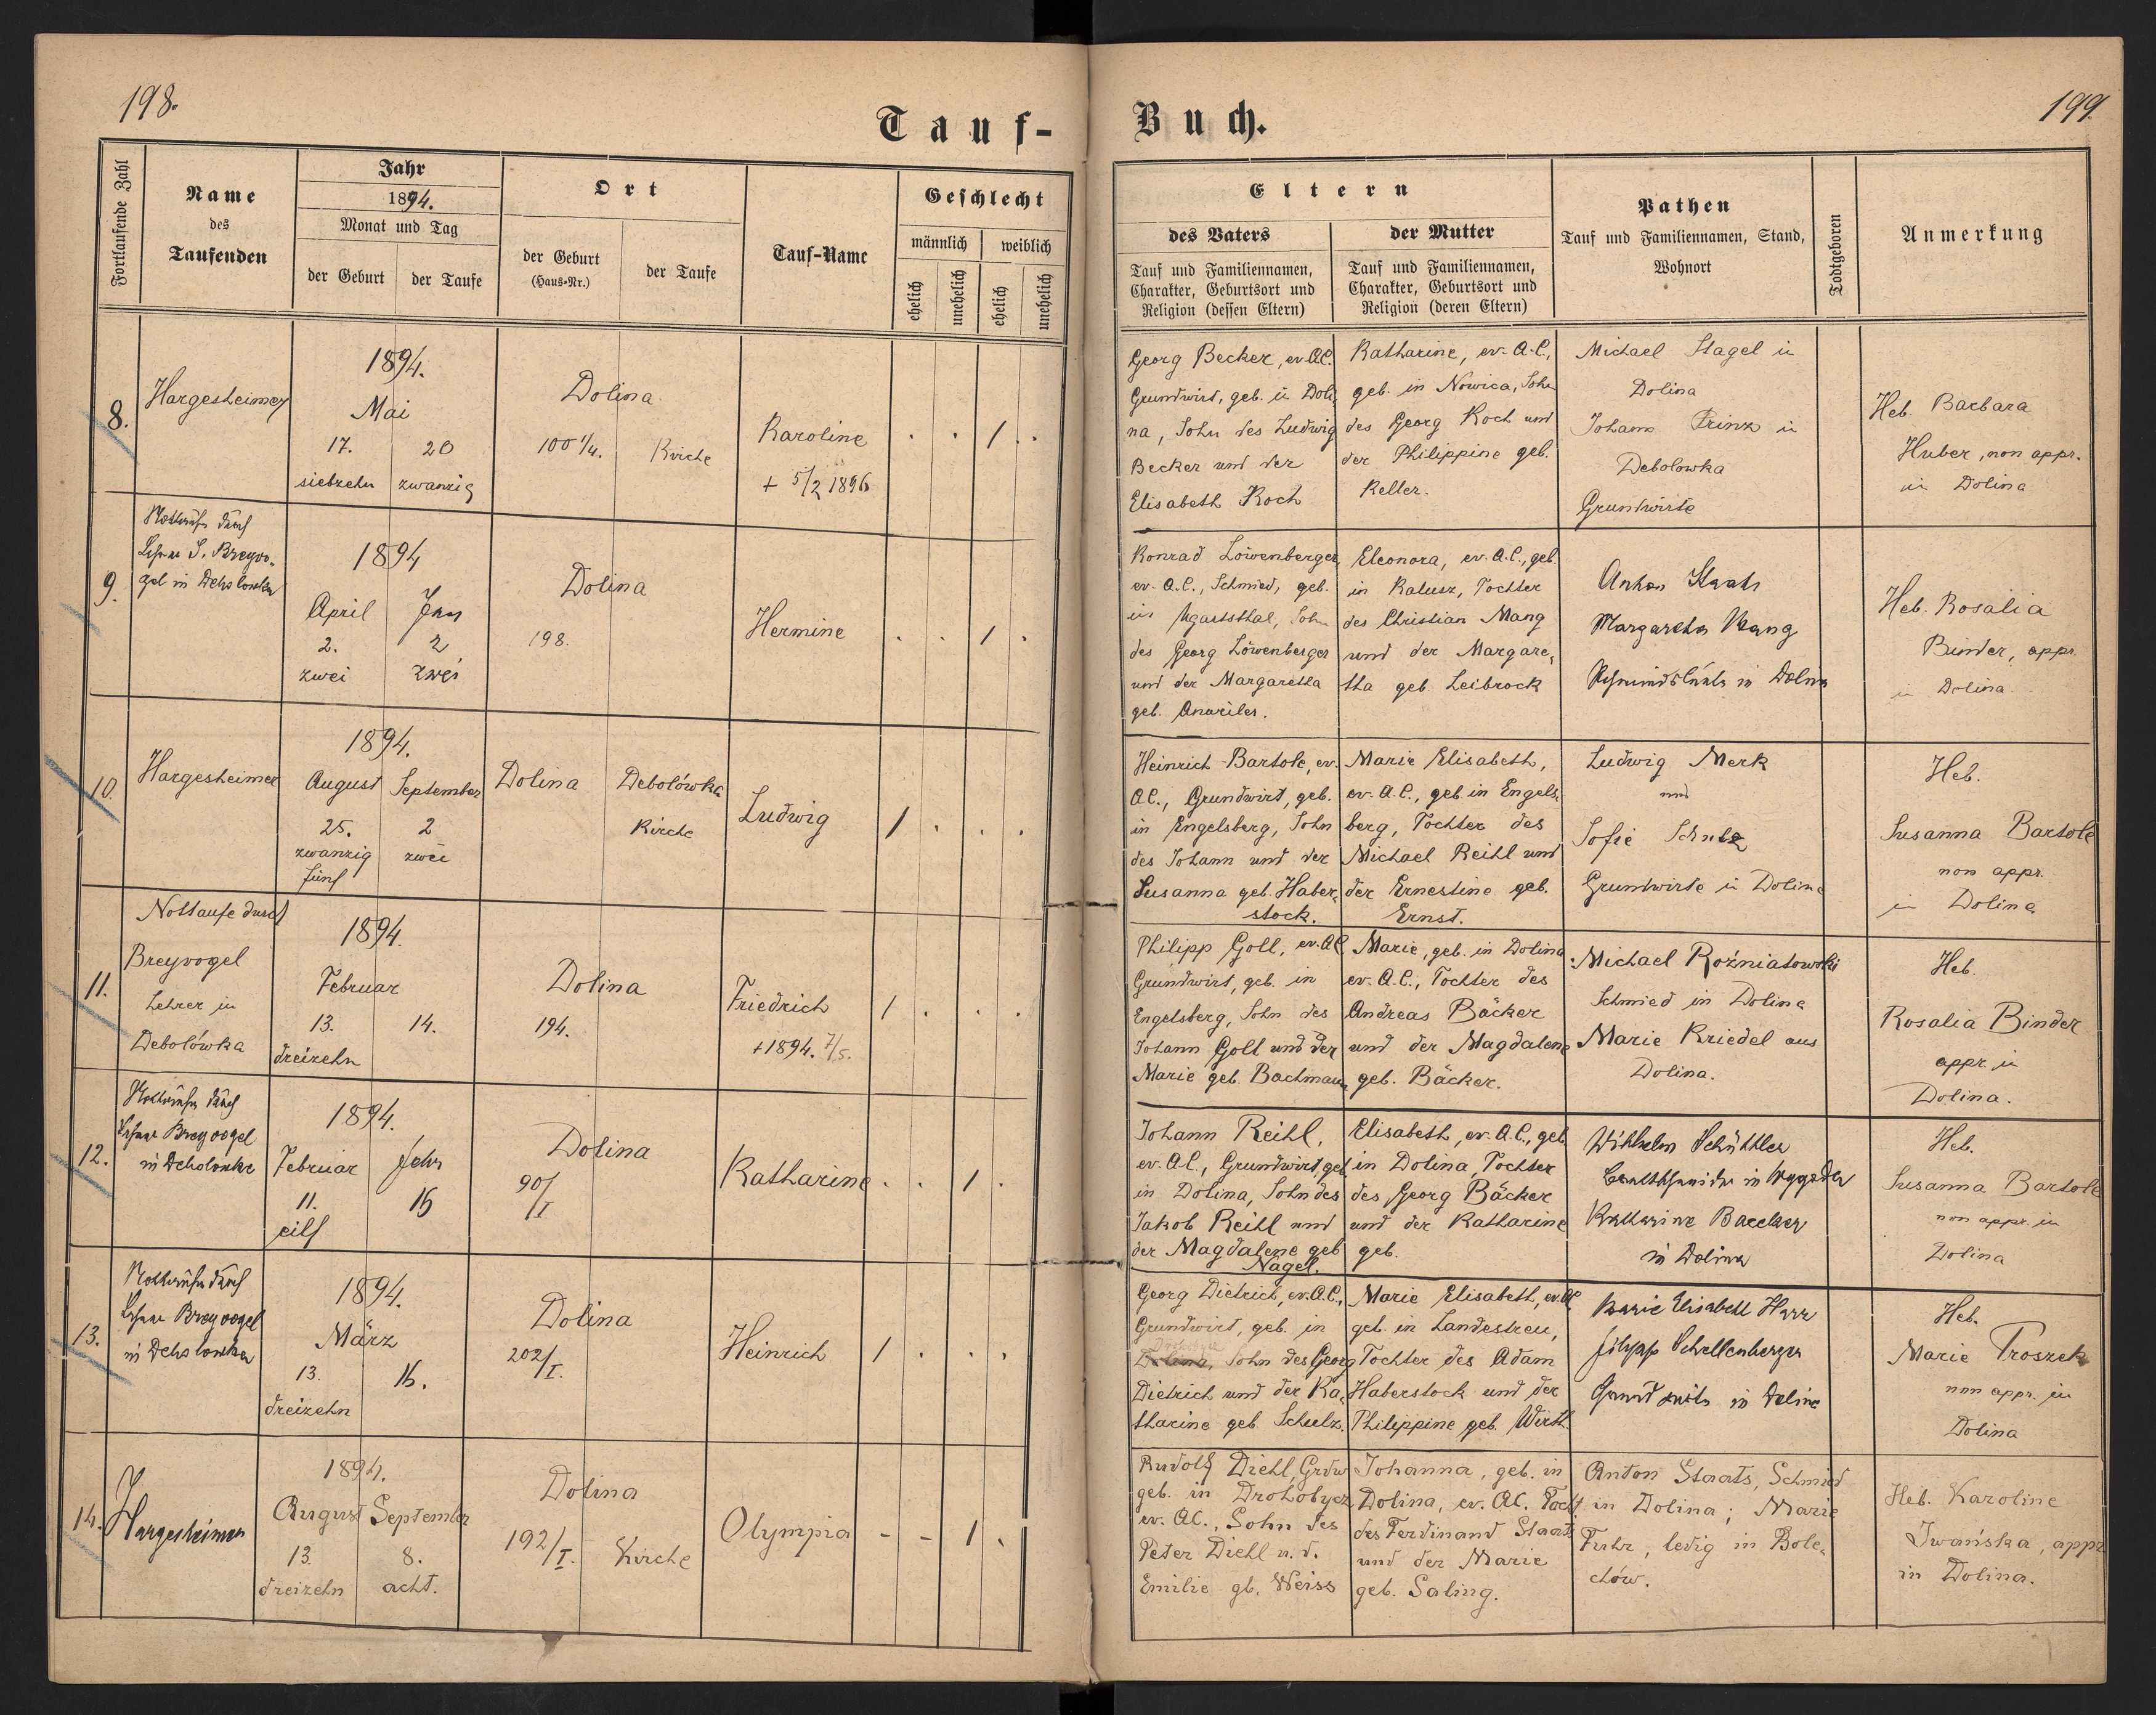 198.
Tauf-
Fortlaufende Zahl
Name
des
Taufenden
Jahr
1894.
Monat und Tag
der Geburt
der Taufe
Ort
der Geburt
(Haus-Nr.)
der Taufe
Tauf-Name
Geschlecht
männlich
weiblich
ehelich
unehelich
ehelich
unehelich
8.
Hargesheimer
1894.
Mai
17.
20
siebzehn
zwanzig
Dolina
100 1/4.
Kirche
Karoline
+ 5/2 1896
. . 1 .
9.
Nottaufe durch
Lehrer J. Breyvo-
gel in Debolowka
1894
April
2.
2
zwei
zwei
Dolina
198.
Hermine
. . 1 .
10.
Hargesheimer
1894.
August
September
25.
2
zwanzig
zwei
fünf
Dolina
Debolówka
Kirche
Ludwig
1 . . .
11.
Nottaufe durch
Breyvogel
Lehrer in
Debolówka
1894.
Februar
13.
14.
dreizehn
Dolina
194.
Friedrich
+1894. 7/5.
1 . . .
12.
Nottaufe durch
Lehrer Breyvogel
in Debolowka
1894.
Februar
11.
16
eilf
Dolina
90/I
Katharine
. . 1 .
13.
Nottaufe durch
Lehrer Breyvogel
in Debolowka
1894.
März
13.
16.
dreizehn
Dolina
202/I.
Heinrich
1 . . .
14.
Hargesheimer
1894.
August
September
13.
8.
dreizehn
acht.
Dolina
192/I.
Kirche
Olympia
- - 1 .
199.
Buch.
Eltern
des Vaters
Tauf und Familiennamen,
Charakter, Geburtsort und
Religion (dessen Eltern)
der Mutter
Tauf und Familiennamen,
Charakter, Geburtsort und
Religion (deren Eltern)
Pathen
Tauf und Familiennamen, Stand,
Wohnort
Todtgeboren
Anmerkung
Georg Becker, ev. A.C.
Grundwirt, geb. in Doli-
na, Sohn des Ludwig
Becker und der
Elisabeth Koch
Katharine, ev. A.C.,
geb. in Nowica,
des Georg Koch und
der Philippine geb.
Keller.
Michael Stagel in
Dolina
Johann Prinz in
Debolowka
Grundwirte
Heb. Barbara
Huber, non appr.
in Dolina
Konrad Löwenberger,
ev. A.C., Schmied, geb.
in Ugartsthal, Sohn
des Georg Löwenberger
und der Margaretha
geb.
Eleonora, ev. A.C., geb.
in Kalusz, Tochter
des Christian Mang
und der Margare-
tha geb. Leibrock
Anton Staats
Margaretha Mang
in Dolina
Heb. Rosalia
Binder, appr.
in Dolina
Heinrich Bartole, ev.
A.C., Grundwirt, geb.
in Engelsberg, Sohn
des Johann und der
Susanna geb. Haber-
stock.
Marie Elisabeth,
ev. A.C., geb. in Engels-
berg, Tochter des
Michael Reihl und
der Ernestine geb.
Ernst.
Ludwig Merk
und
Sofie Schulz
Grundwirte in Dolina
Heb.
Susanna Bartole
non appr.
in Dolina
Philipp Goll, ev. A.C.
Grundwirt, geb. in
Engelsberg, Sohn des
Johann Goll und der
Marie geb. Bachmann
Marie, geb. in Dolina
ev. A.C., Tochter des
Andreas Bäcker
und der Magdalene
geb. Bäcker.
Michael Rożniatowski
Schmied in Dolina
Marie Kriedel aus
Dolina.
Heb.
Rosalia Binder
appr. in
Dolina.
Johann Reihl,
ev. A.C., Grundwirt, geb.
in Dolina, Sohn des
Jakob Reihl und
der Magdalene geb
Nagel.
Elisabeth, ev. A.C., geb
in Dolina, Tochter
des Georg Bäcker
und der Katharine
geb.
Wilhelm Schüttler
in Wygoda
Katharine Baecker
in Dolina
Heb.
Susanna Bartole
non appr. in
Dolina
Georg Dietrich, ev. A.C.,
Grundwirt, geb. in
Dolina, Sohn des Georg
Dietrich und der Ka-
tharine geb. Schulz.
Marie Elisabeth, ev. A.C.
geb. in Landestreu,
Tochter des Adam
Haberstock und der
Philippine geb. Wirth.
Marie Elisabeth Harr
Filipp Schellenberger
Grundwirte in Dolina
Heb.
Marie Proszek
non appr. in
Dolina
Rudolf Diehl, Grdw
geb. in Drohobycz
ev. A.C., Sohn des
Peter Diehl u. d.
Emilie gb. Weiss
Johanna, geb. in
Dolina, ev. A.C. Tocht.
des Ferdinand Staats
und der Marie
geb. Saling.
Anton Staats, Schmied
in Dolina; Marie
Fuhr, ledig in Bole-
chów.
Heb. Karoline
Iwańska, appr
in Dolina.